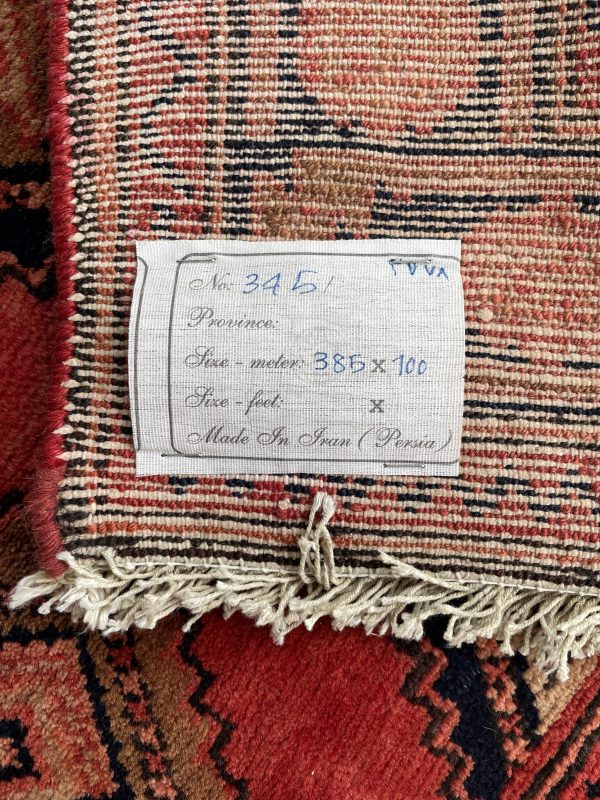 No: 3451 ۲۷۷۸
Province:
Size - meter: 385 x 100
Size - feet: x
Made In Iran (Persia)